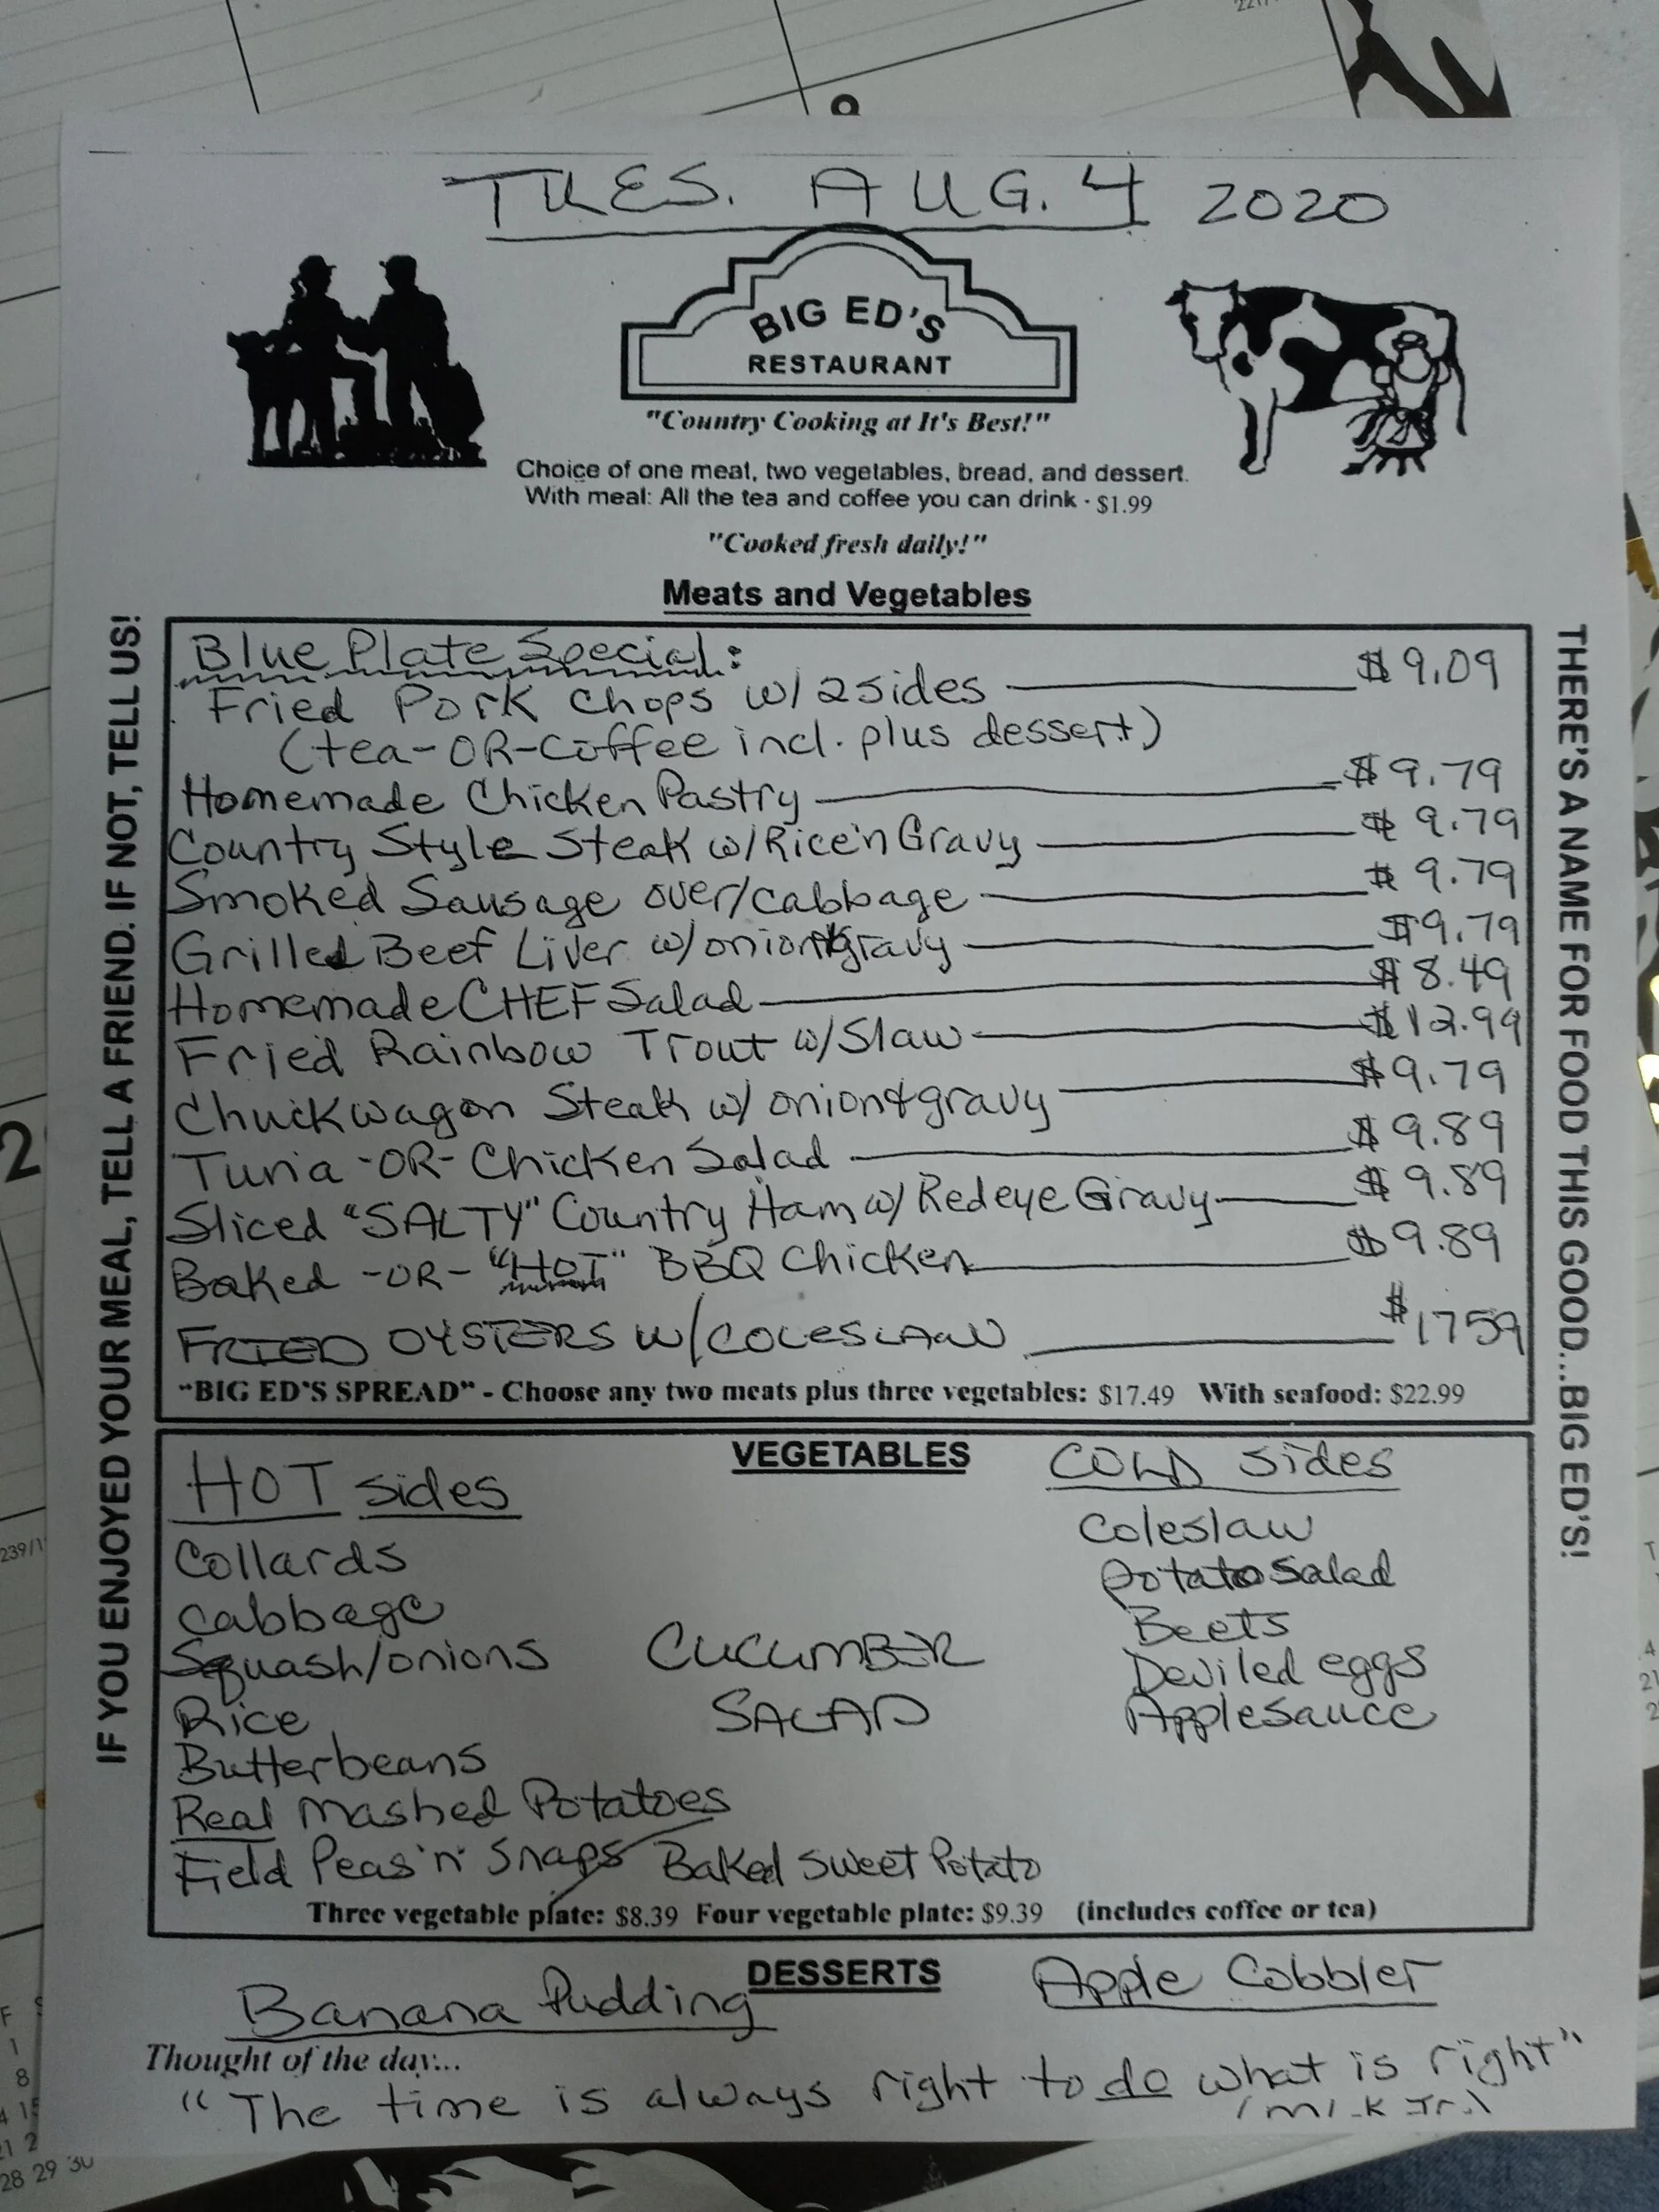 TUES. AUG. 4 2020
BIG ED'S
RESTAURANT
"Country Cooking at It's Best!"
Choice of one meat, two vegetables, bread, and dessert.
With meal: All the tea and coffee you can drink - $1.99
"Cooked fresh daily!"
Meats and Vegetables
IF YOU ENJOYED YOUR MEAL, TELL A FRIEND. IF NOT, TELL US!
THERE'S A NAME FOR FOOD THIS GOOD...BIG ED'S!
Blue Plate Special:
Fried Pork Chops w/ 2 sides $9.09
(tea-OR-Coffee incl. plus dessert)
Homemade Chicken Pastry $9.79
Country Style Steak w/Rice'n Gravy $9.79
Smoked Sausage over/cabbage $9.79
Grilled Beef Liver w/onion&gravy $9.79
Homemade CHEF Salad $8.49
Fried Rainbow Trout w/Slaw $12.99
Chuckwagon Steak w/ onion&gravy $9.79
Tuna -OR- Chicken Salad $9.89
Sliced "SALTY" Country Ham w/ Redeye Gravy $9.89
Baked -OR- "HOT" BBQ Chicken $9.89
FRIED OYSTERS W/COLESLAW $1759
"BIG ED'S SPREAD" - Choose any two meats plus three vegetables: $17.49 With seafood: $22.99
VEGETABLES
HOT sides
Collards
Cabbage
Squash/onions
Rice
Butterbeans
Real Mashed Potatoes
Field Peas 'n' Snaps
Baked Sweet Potato
CUCUMBER
SALAD
COLD Sides
Coleslaw
Potato Salad
Beets
Deviled eggs
Applesauce
Three vegetable plate: $8.39 Four vegetable plate: $9.39 (includes coffee or tea)
DESSERTS
Banana Pudding
Apple Cobbler
Thought of the day...
"The time is always right to do what is right"
(MLK Jr.)
2
239/1
28 29 30